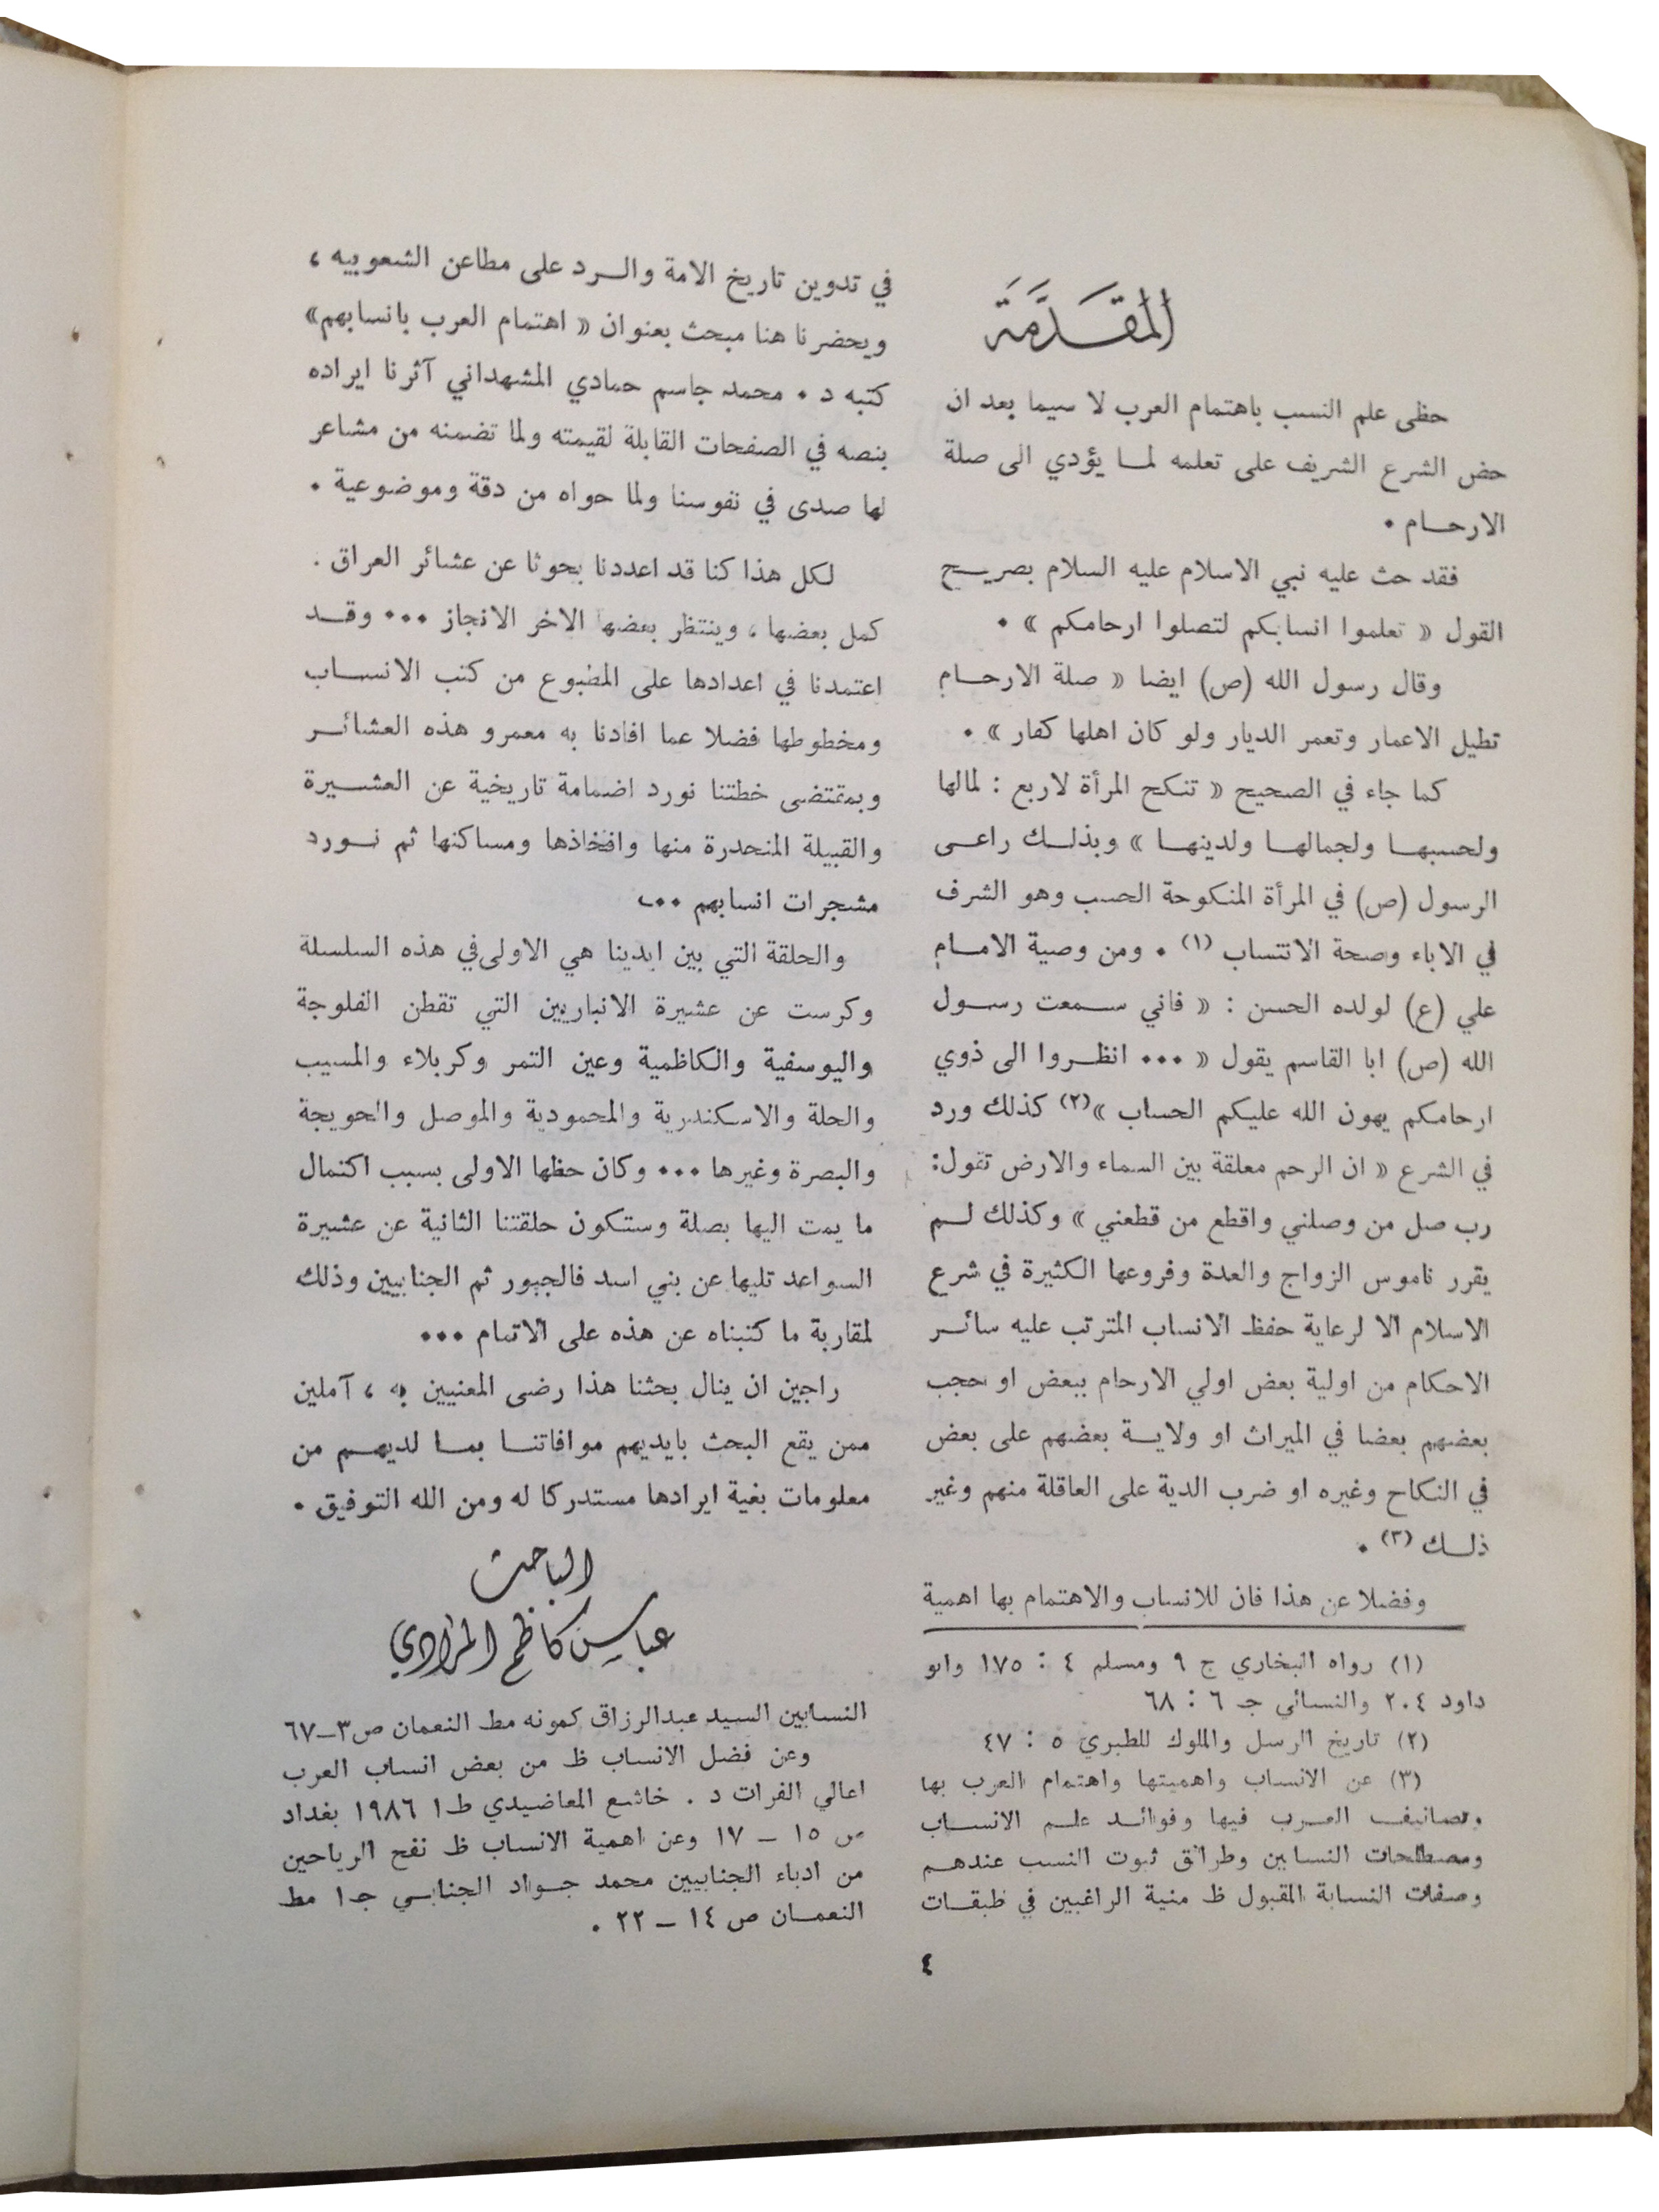 المقدمة
حظى علم النسب باهتمام العرب لا سيما بعد ان
حض الشرع الشريف على تعلمه لما يؤدي الى صلة
الارحام .
فقد حث عليه نبي الاسلام عليه السلام بصريح
القول « تعلموا انسابكم لتصلوا ارحامكم » .
وقال رسول الله (ص) ايضا « صلة الارحام
تطيل الاعمار وتعمر الديار ولو كان اهلها كفار » .
كما جاء في الصحيح « تنكح المرأة لاربع : لمالها
ولحسبها ولجمالها ولدينها » وبذلك راعى
الرسول (ص) في المرأة المنكوحة الحسب وهو الشرف
في الاباء وصحة الانتساب (١) . ومن وصية الامام
علي (ع) لولده الحسن : « فاني سمعت رسول
الله (ص) ابا القاسم يقول « ... انظروا الى ذوي
ارحامكم يهون الله عليكم الحساب »(٢) كذلك ورد
في الشرع « ان الرحم معلقة بين السماء والارض تقول:
رب صل من وصلني واقطع من قطعني » وكذلك لم
يقرر ناموس الزواج والعدة وفروعها الكثيرة في شرع
الاسلام الا لرعاية حفظ الانساب المترتب عليه سائر
الاحكام من اولية بعض اولي الارحام ببعض او حجب
بعضهم بعضا في الميراث او ولاية بعضهم على بعض
في النكاح وغيره او ضرب الدية على العاقلة منهم وغير
ذلك (٣) .
وفضلا عن هذا فان للانساب والاهتمام بها اهمية
(١) رواه البخاري ج ٩ ومسلم ٤ : ١٧٥ وابو
داود ٢٠٤ والنسائي جـ ٦ : ٦٨
(٢) تاريخ الرسل والملوك للطبري ٥ : ٤٧
(٣) عن الانساب واهميتها واهتمام العرب بها
وتصانيف العرب فيها وفوائد علم الانساب
ومصطلحات النسابين وطرائق ثبوت النسب عندهم
وصفات النسابة المقبول ظ منية الراغبين في طبقات
في تدوين تاريخ الامة والرد على مطاعن الشعوبيه ،
ويحضرنا هنا مبحث بعنوان « اهتمام العرب بانسابهم»
كتبه د . محمد جاسم حمادي المشهداني آثرنا ايراده
بنصه في الصفحات القابلة لقيمته ولما تضمنه من مشاعر
لها صدى في نفوسنا ولما حواه من دقة وموضوعية .
لكل هذا كنا قد اعددنا بحوثا عن عشائر العراق .
كمل بعضها ، وينتظر بعضها الاخر الانجاز ... وقد
اعتمدنا في اعدادها على المطبوع من كتب الانساب
ومخطوطها فضلا عما افادنا به معمرو هذه العشائر
وبمقتضى خطتنا نورد اضمامة تاريخية عن العشيرة
والقبيلة المنحدرة منها وافخاذها ومساكنها ثم نورد
مشجرات انسابهم ...
والحلقة التي بين ايدينا هي الاولى في هذه السلسلة
وكرست عن عشيرة الانباريين التي تقطن الفلوجة
واليوسفية والكاظمية وعين التمر وكربلاء والمسيب
والحلة والاسكندرية والمحمودية والموصل والحويجة
والبصرة وغيرها ... وكان حظها الاولى بسبب اكتمال
ما يمت اليها بصلة وستكون حلقتنا الثانية عن عشيرة
السواعد تليها عن بني اسد فالجبور ثم الجنابيين وذلك
لمقاربة ما كتبناه عن هذه على الاتمام ...
راجين ان ينال بحثنا هذا رضى المعنيين به ، آملين
ممن يقع البحث بايديهم موافاتنا بما لديهم من
معلومات بغية ايرادها مستدركا له ومن الله التوفيق .
الباحث
عباس كاظم المرادي
النسابين السيد عبدالرزاق كمونه مط النعمان ص٣ــ٦٧
وعن فضل الانساب ظ من بعض انساب العرب
اعالي الفرات د . خاشع المعاضيدي ط١ ١٩٨٦ بغداد
ص ١٥ ــ ١٧ وعن اهمية الانساب ظ نفح الرياحين
من ادباء الجنابيين محمد جواد الجنابي جـ١ مط
النعمان ص ١٤ ــ ٢٢ .
٤